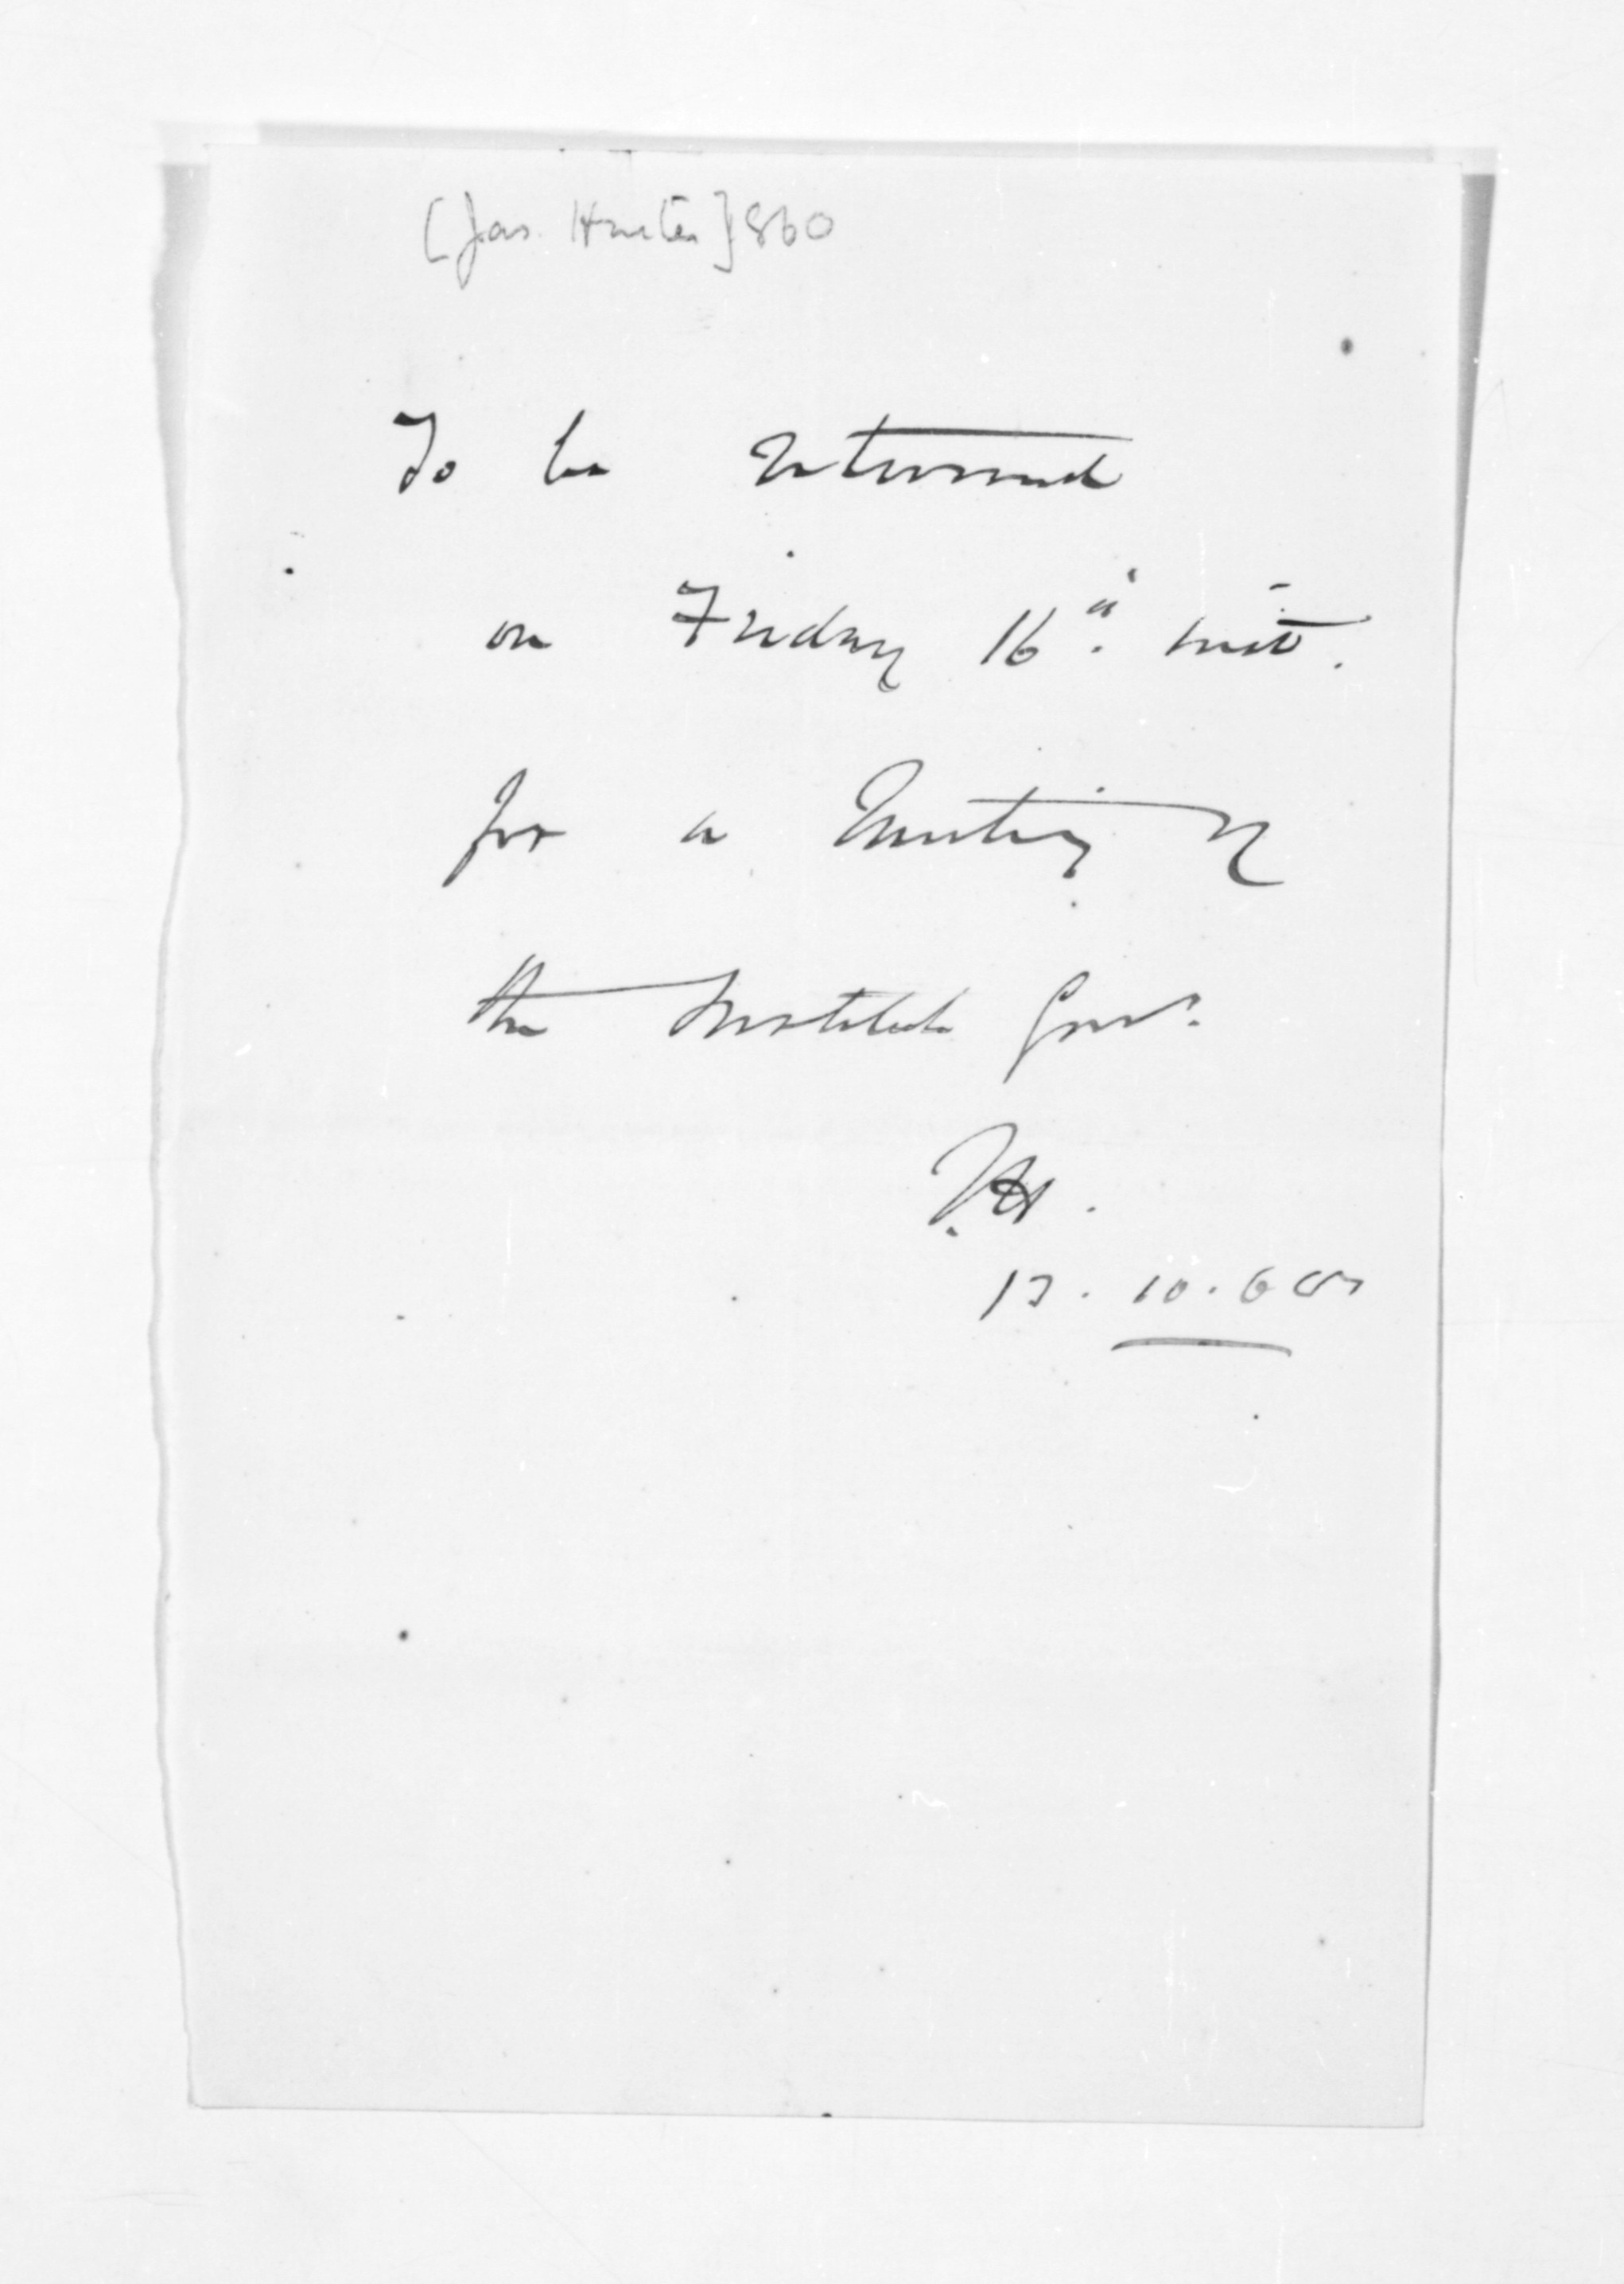 [Jas.
To be returned
on Friday 16th inst.
for a Meeting of
the Institute Govrs.
JH.
13. 10. 68